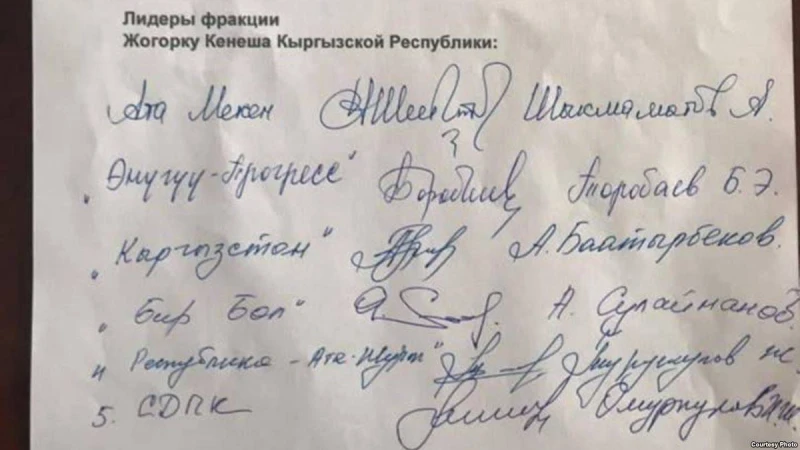 Лидеры фракции
Жогорку Кенеша Кыргызской Республики:
Ата Мекен Шыкмаматов А.
„Өнүгүү-Прогресс" Торобаев Б. Э.
„Кыргызстан" А. Баатырбеков.
„Бир Бол" А. Сулайманов.
Республика - Ата-Журт"
5. СДПК Омуркулов И.Ш.
Courtesy Photo